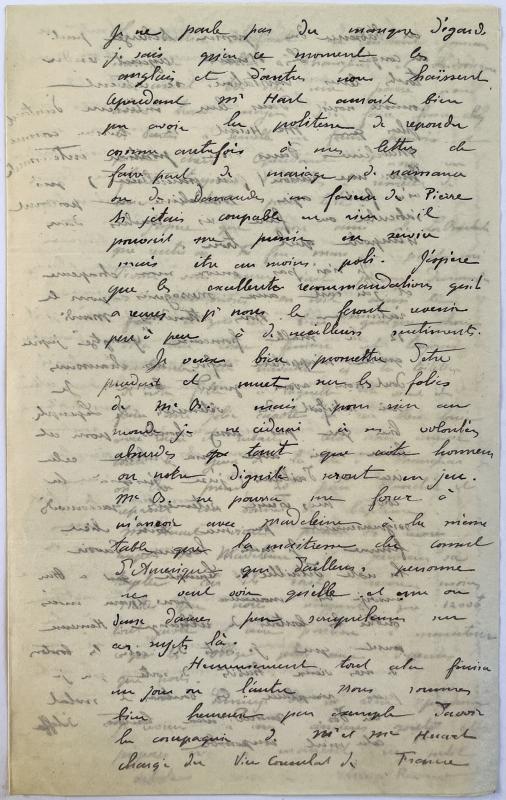 Je ne parle pas du manque d'égards
je sais qu'en ce moment les
anglais et d'autres nous haïssent.
Cependant Mr Hart aurait bien
pu avoir la politesse de repondre
comme autrefois à mes lettres de
faire part de mariage de naissance
ou de demandes en faveur de Pierre
Si j'etais coupable en rien il
pouvait me punir en service
mais être au moins poli. J'espère
que les excellentes recommandations qu'il
a reçues pr nous le feront revenir
peu à peu à de meilleurs sentiments.
Je veux bien promettre d'etre
prudent et muet sur les folies
de Mr B. mais pour rien au
monde je ne céderai à ses volontés
absurdes tant que notre honneur
ou notre dignité seront en jeu.
Mr B. ne pourra me forcer à
m'asseoir avec Madeleine à la même
table que la maitresse du consul
d'Amerique que d'ailleurs personne
ne veut voir qu'elle et une ou
deux dames peu scrupuleuses sur
ces sujets là.
Heureusement tout cela finira
un jour ou l'autre nous sommes
bien heureux par exemple d'avoir
la compagnie de Mr et Me
chargé du Vice Consulat de France